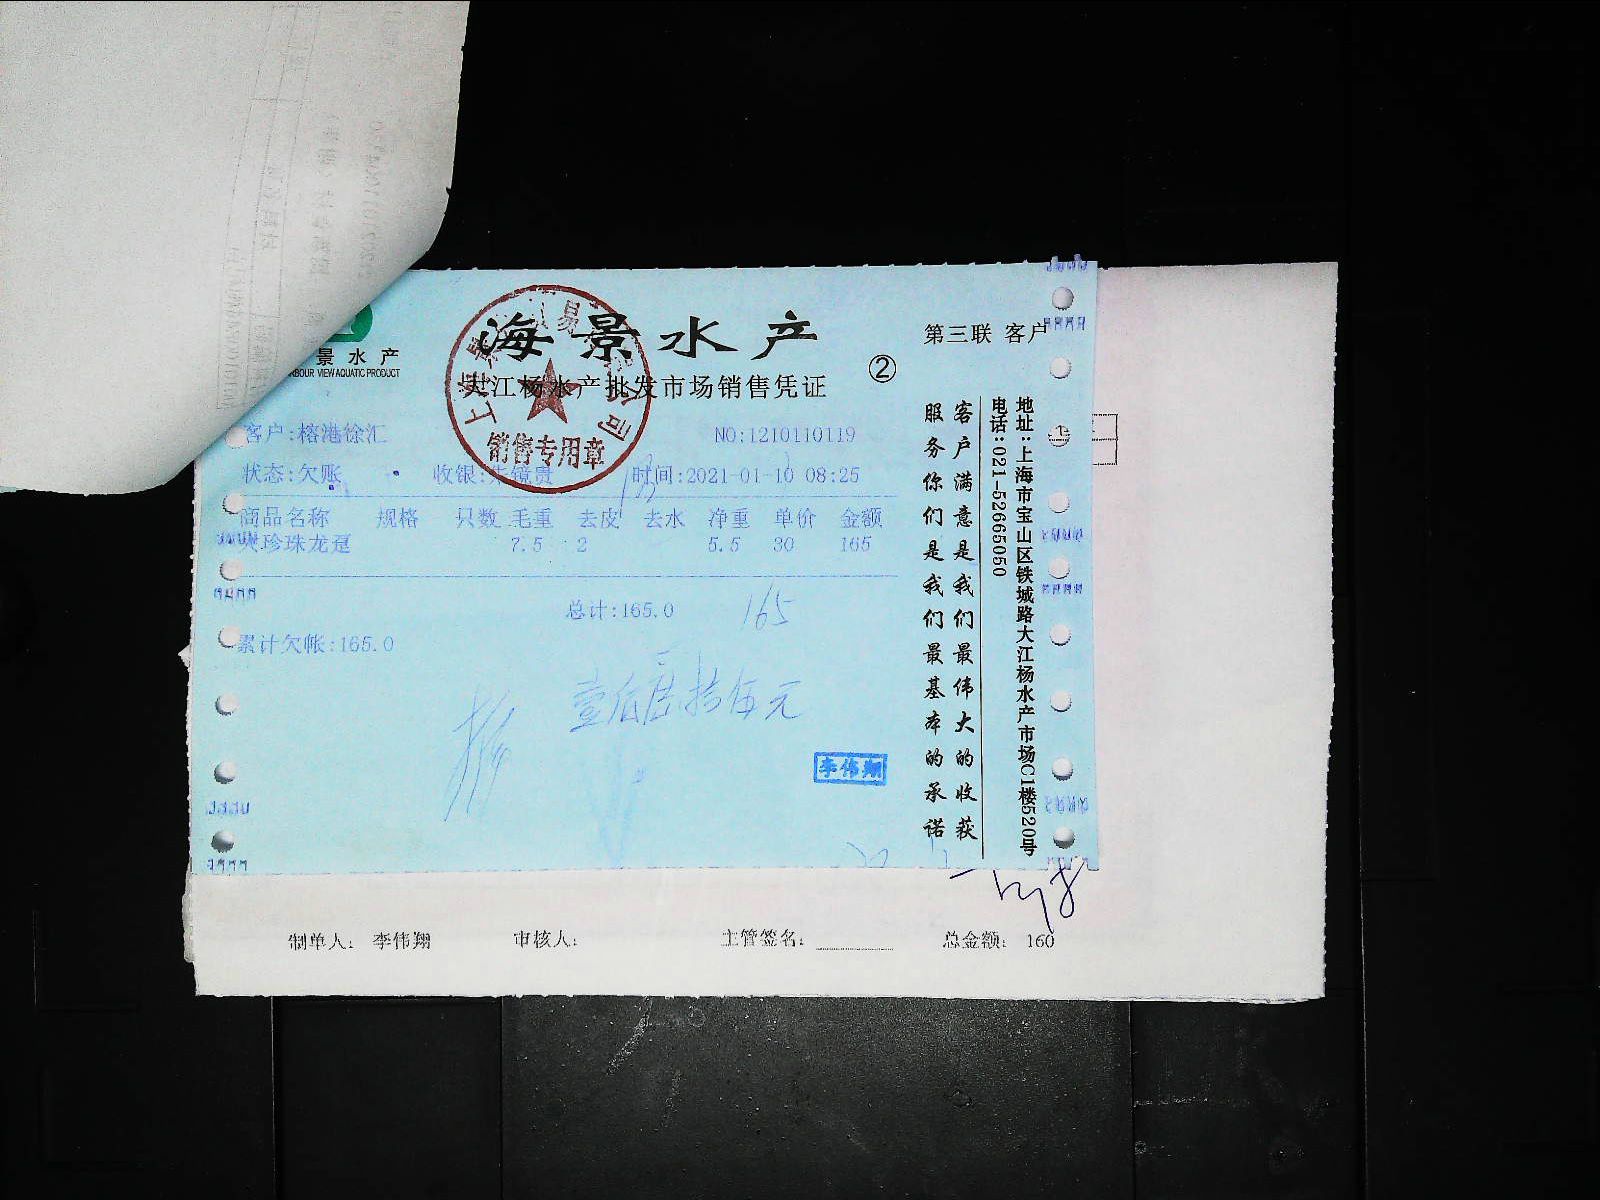 海景水产
大江杨水产批发市场销售凭证
②
第三联 客户
景水产
BOUR VIEW AQUATIC PRODUCT
销售专用章
客户:榕港徐汇
NO:1210110119
状态:欠账
收银:朱镜贵
时间:2021-01-10 08:25
商品名称 规格 只数 毛重 去皮 去水 净重 单价 金额
大珍珠龙趸 7.5 2 5.5 30 165
总计:165.0
165
累计欠帐:165.0
壹佰陆拾伍元
李伟翔
客户满意是我们最伟大的收获
服务你们是我们最基本的承诺
地址:上海市宝山区铁城路大江杨水产市场C1楼520号
电话:021-52665050
制单人: 李伟翔
审核人:
主管签名:
总金额: 160